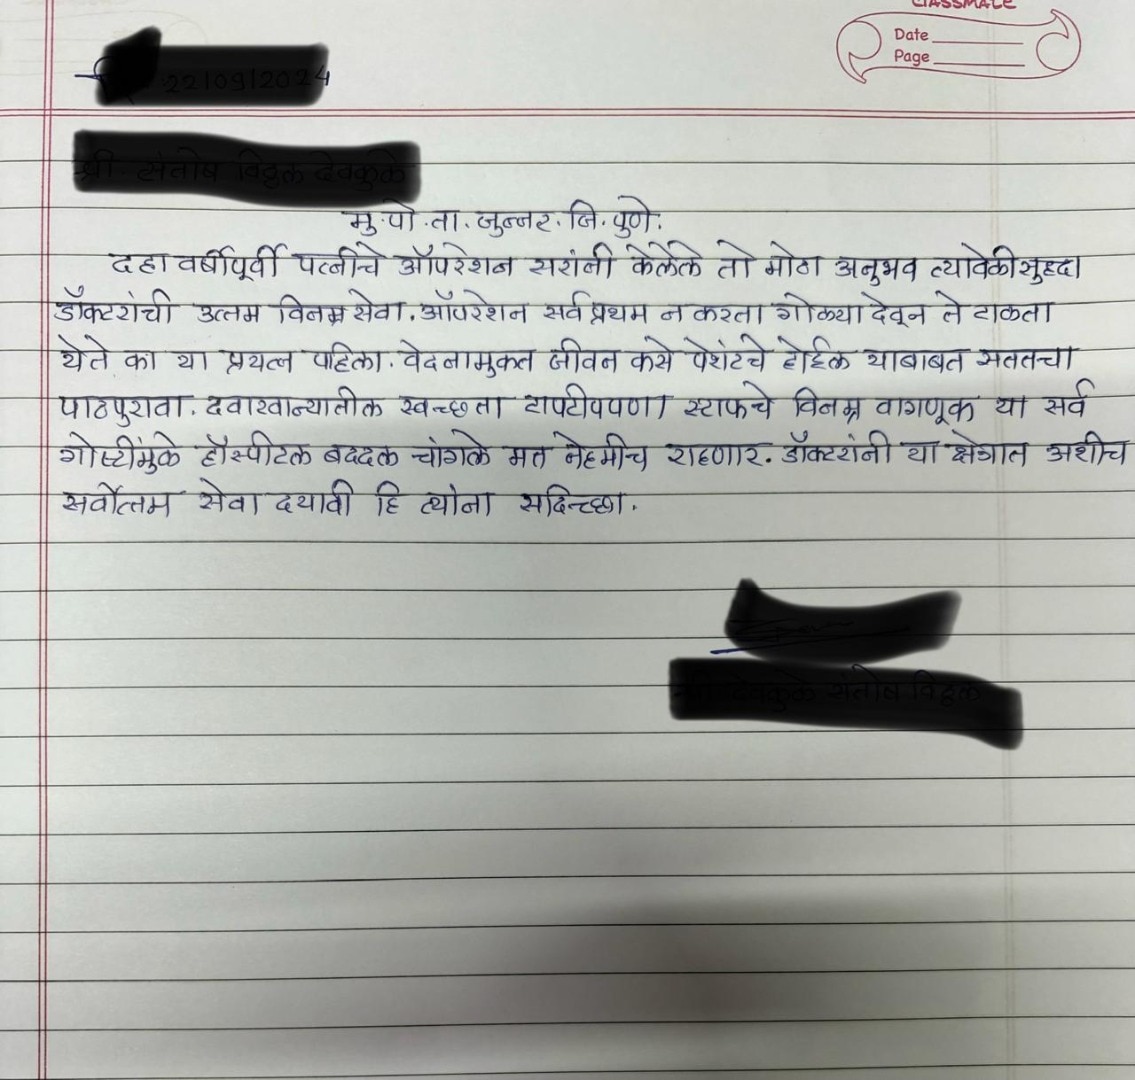 CLASSMATE
Date
Page
मु.पो.ता. जुन्नर. जि. पुणे.
दहा वर्षीपूर्वी पत्नीचे ऑपरेशन सरांनी केलेले तो मोठा अनुभव त्यावेळीसुद्दा
डॉक्टरांची उत्तम विनम्र सेवा. ऑपरेशन सर्व प्रथम न करता गोळ्या देवून ते टाळता
येते का या प्रयत्न पहिला. वेदनामुक्त जीवन कसे पेशंटचे होईल याबाबत सततचा
पाठपुरावा. दवाखान्यातील स्वच्छता टापटीपपणा स्टाफचे विनम्र वागणूक या सर्व
गोष्टींमुळे हॉस्पीटल बददल चांगले मत नेहमीच राहणार. डॉक्टरांनी या क्षेत्रात अशीच
सर्वोत्तम सेवा दयावी हि त्यांना सदिच्छा.